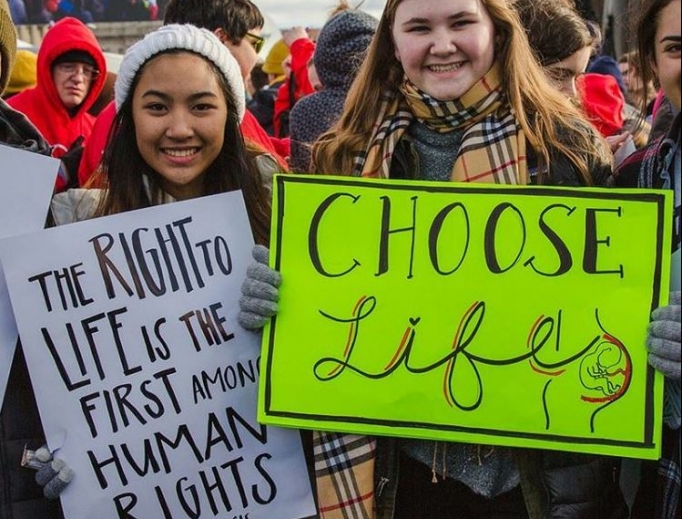 THE RIGHT TO
LIFE IS THE
FIRST AMONG
HUMAN
RIGHTS
CHOOSE
Life